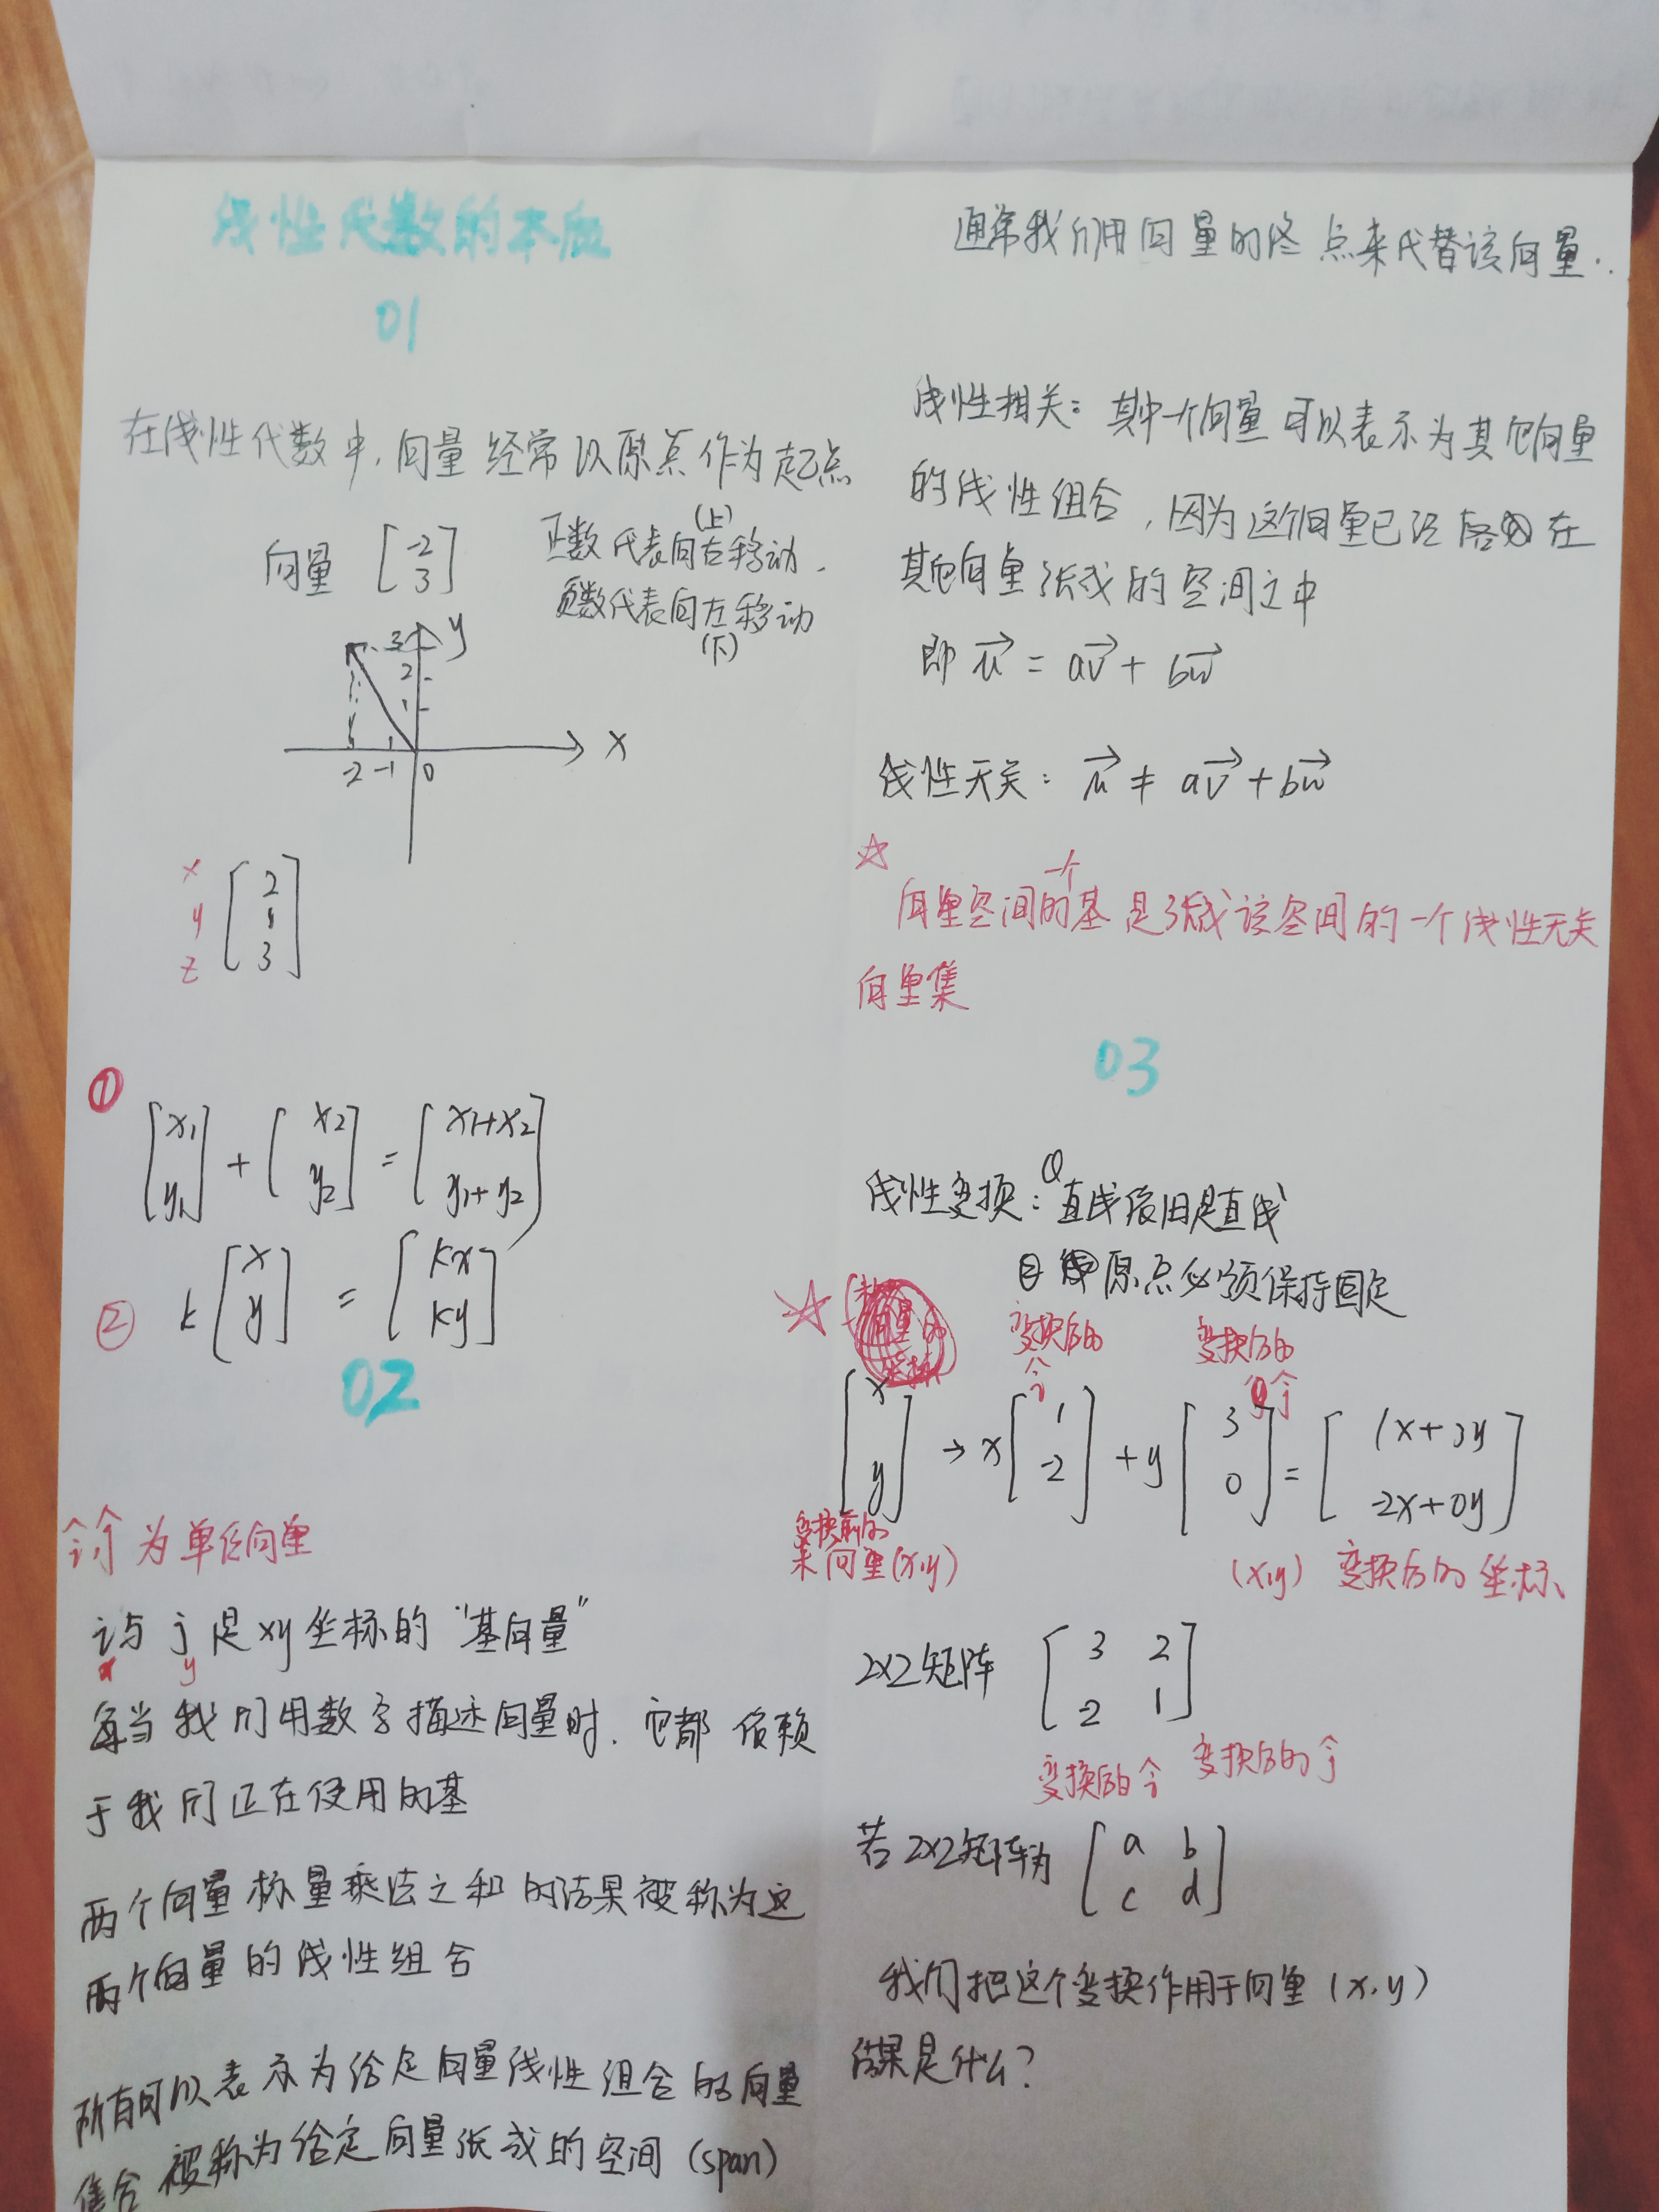 线性代数的本质
01
在线性代数中,向量经常以原点作为起点
向量 [-2 3]
正数代表向右移动.
(上)
负数代表向左移动
(下)
y
3
2
1
-2 -1 0
x
x
y
z
[2 1 3]
①
[x1 y1] + [x2 y2] = [x1+x2 y1+y2]
② k [x y] = [kx ky]
02
î ĵ 为单位向量
i与 j 是xy坐标的“基向量”
x y
每当我们用数字描述向量时.它都依赖
于我们正在使用的基
两个向量标量乘法之和的结果被称为这
两个向量的线性组合
所有可以表示为给定向量线性组合的向量
集合被称为给定向量张成的空间(span)
通常我们用向量的终点来代替该向量..
线性相关:其中一个向量可以表示为其他向量
的线性组合,因为这个向量已经落在
其他向量张成的空间之中
即 u⃗ = av⃗ + bw⃗
线性无关: u⃗ ≠ av⃗ + bw⃗
☆
向量空间的一个基是张成该空间的一个线性无关
向量集
03
线性变换:①直线依旧是直线
② 原点必须保持固定
☆
变换后的 î
变换后的 ĵ
[x y] → x [1 -2] + y [3 0] = [1x+3y -2x+0y]
变换前的
某向量(x,y)
(x,y) 变换后的坐标
2×2矩阵 [3 2 -2 1]
变换后的 î 变换后的 ĵ
若2×2矩阵为 [a b c d]
我们把这个变换作用于向量(x,y)
结果是什么?